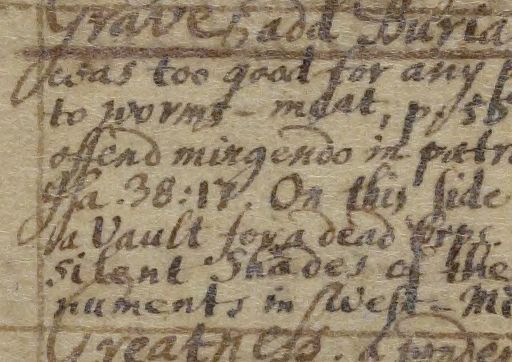 Grave, add Buria
was too good for any p
to worms-meat, p. 55
offend mingendo in patri
Isa. 38:17. On this side
a Vault for a dead Corps.
silent Shades of the
numents in West-Mi
Greatness. a